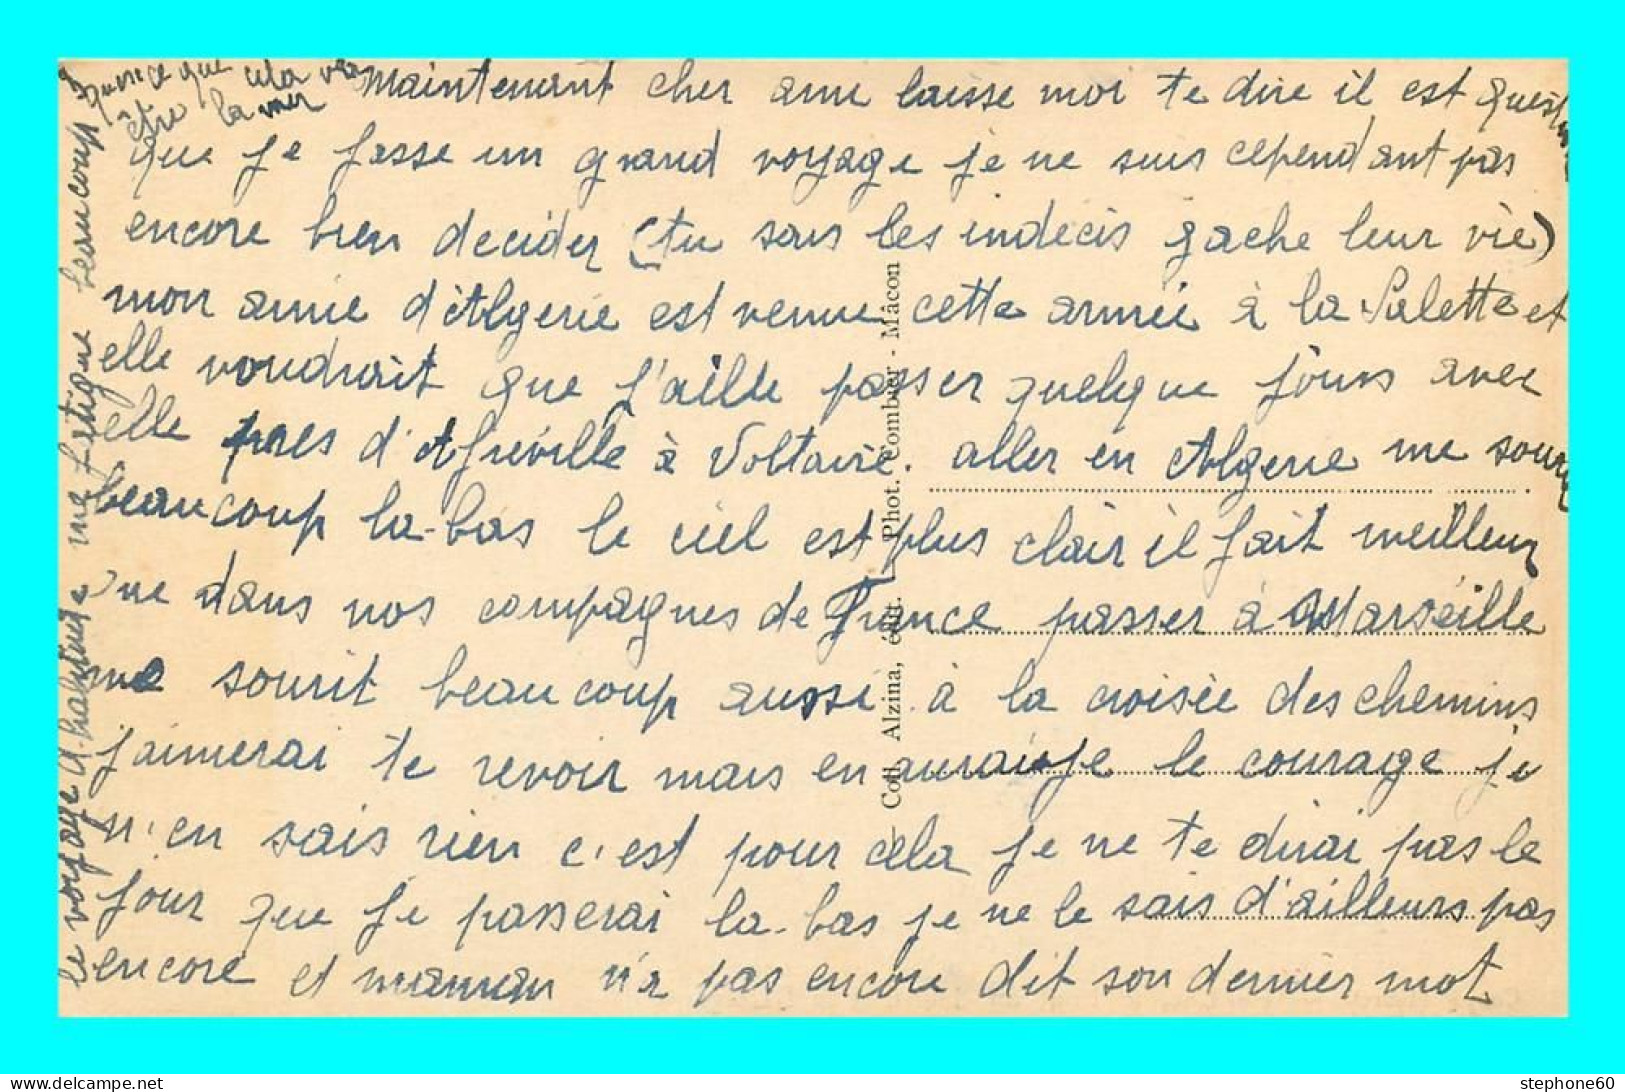 Maintenant cher ami laisse moi te dire il est question
que je fasse un grand voyage je ne suis cependant pas
encore bien decider (tu sais les indécis gache leur vie)
mon amie d'Algerie est venue cette année à la Salette et
elle voudrait que j'aille passer quelque jours avec
elle pres d'Afréville à Voltaire. aller en Algerie me sourit
beaucoup la-bas le ciel est plus clair il fait meilleur
que dans nos campagnes de France passer à Marseille
me sourit beaucoup aussi à la croisée des chemins
j'aimerai te revoir mais en aurai-je le courage je
n'en sais rien c'est pour cela je ne te dirai pas le
jour que je passerai la-bas je ne le sais d'ailleurs pas
encore et maman n'a pas encore dit son dernier mot
le voyage d'habitude me fatigue beaucoup
qu'est ce que cela va
être la mer
Coll. Alzina, édit. - Phot. Combier - Mâcon
stephone60